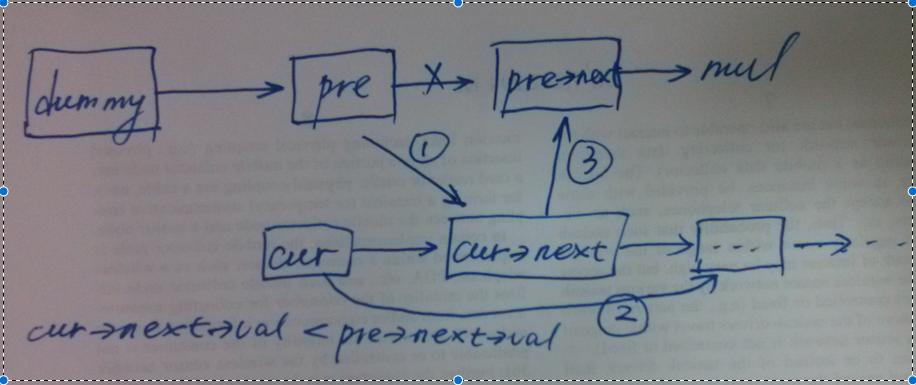 dummy pre pre→next null
① ③
cur cur→next ...
②
cur→next→val < pre→next→val